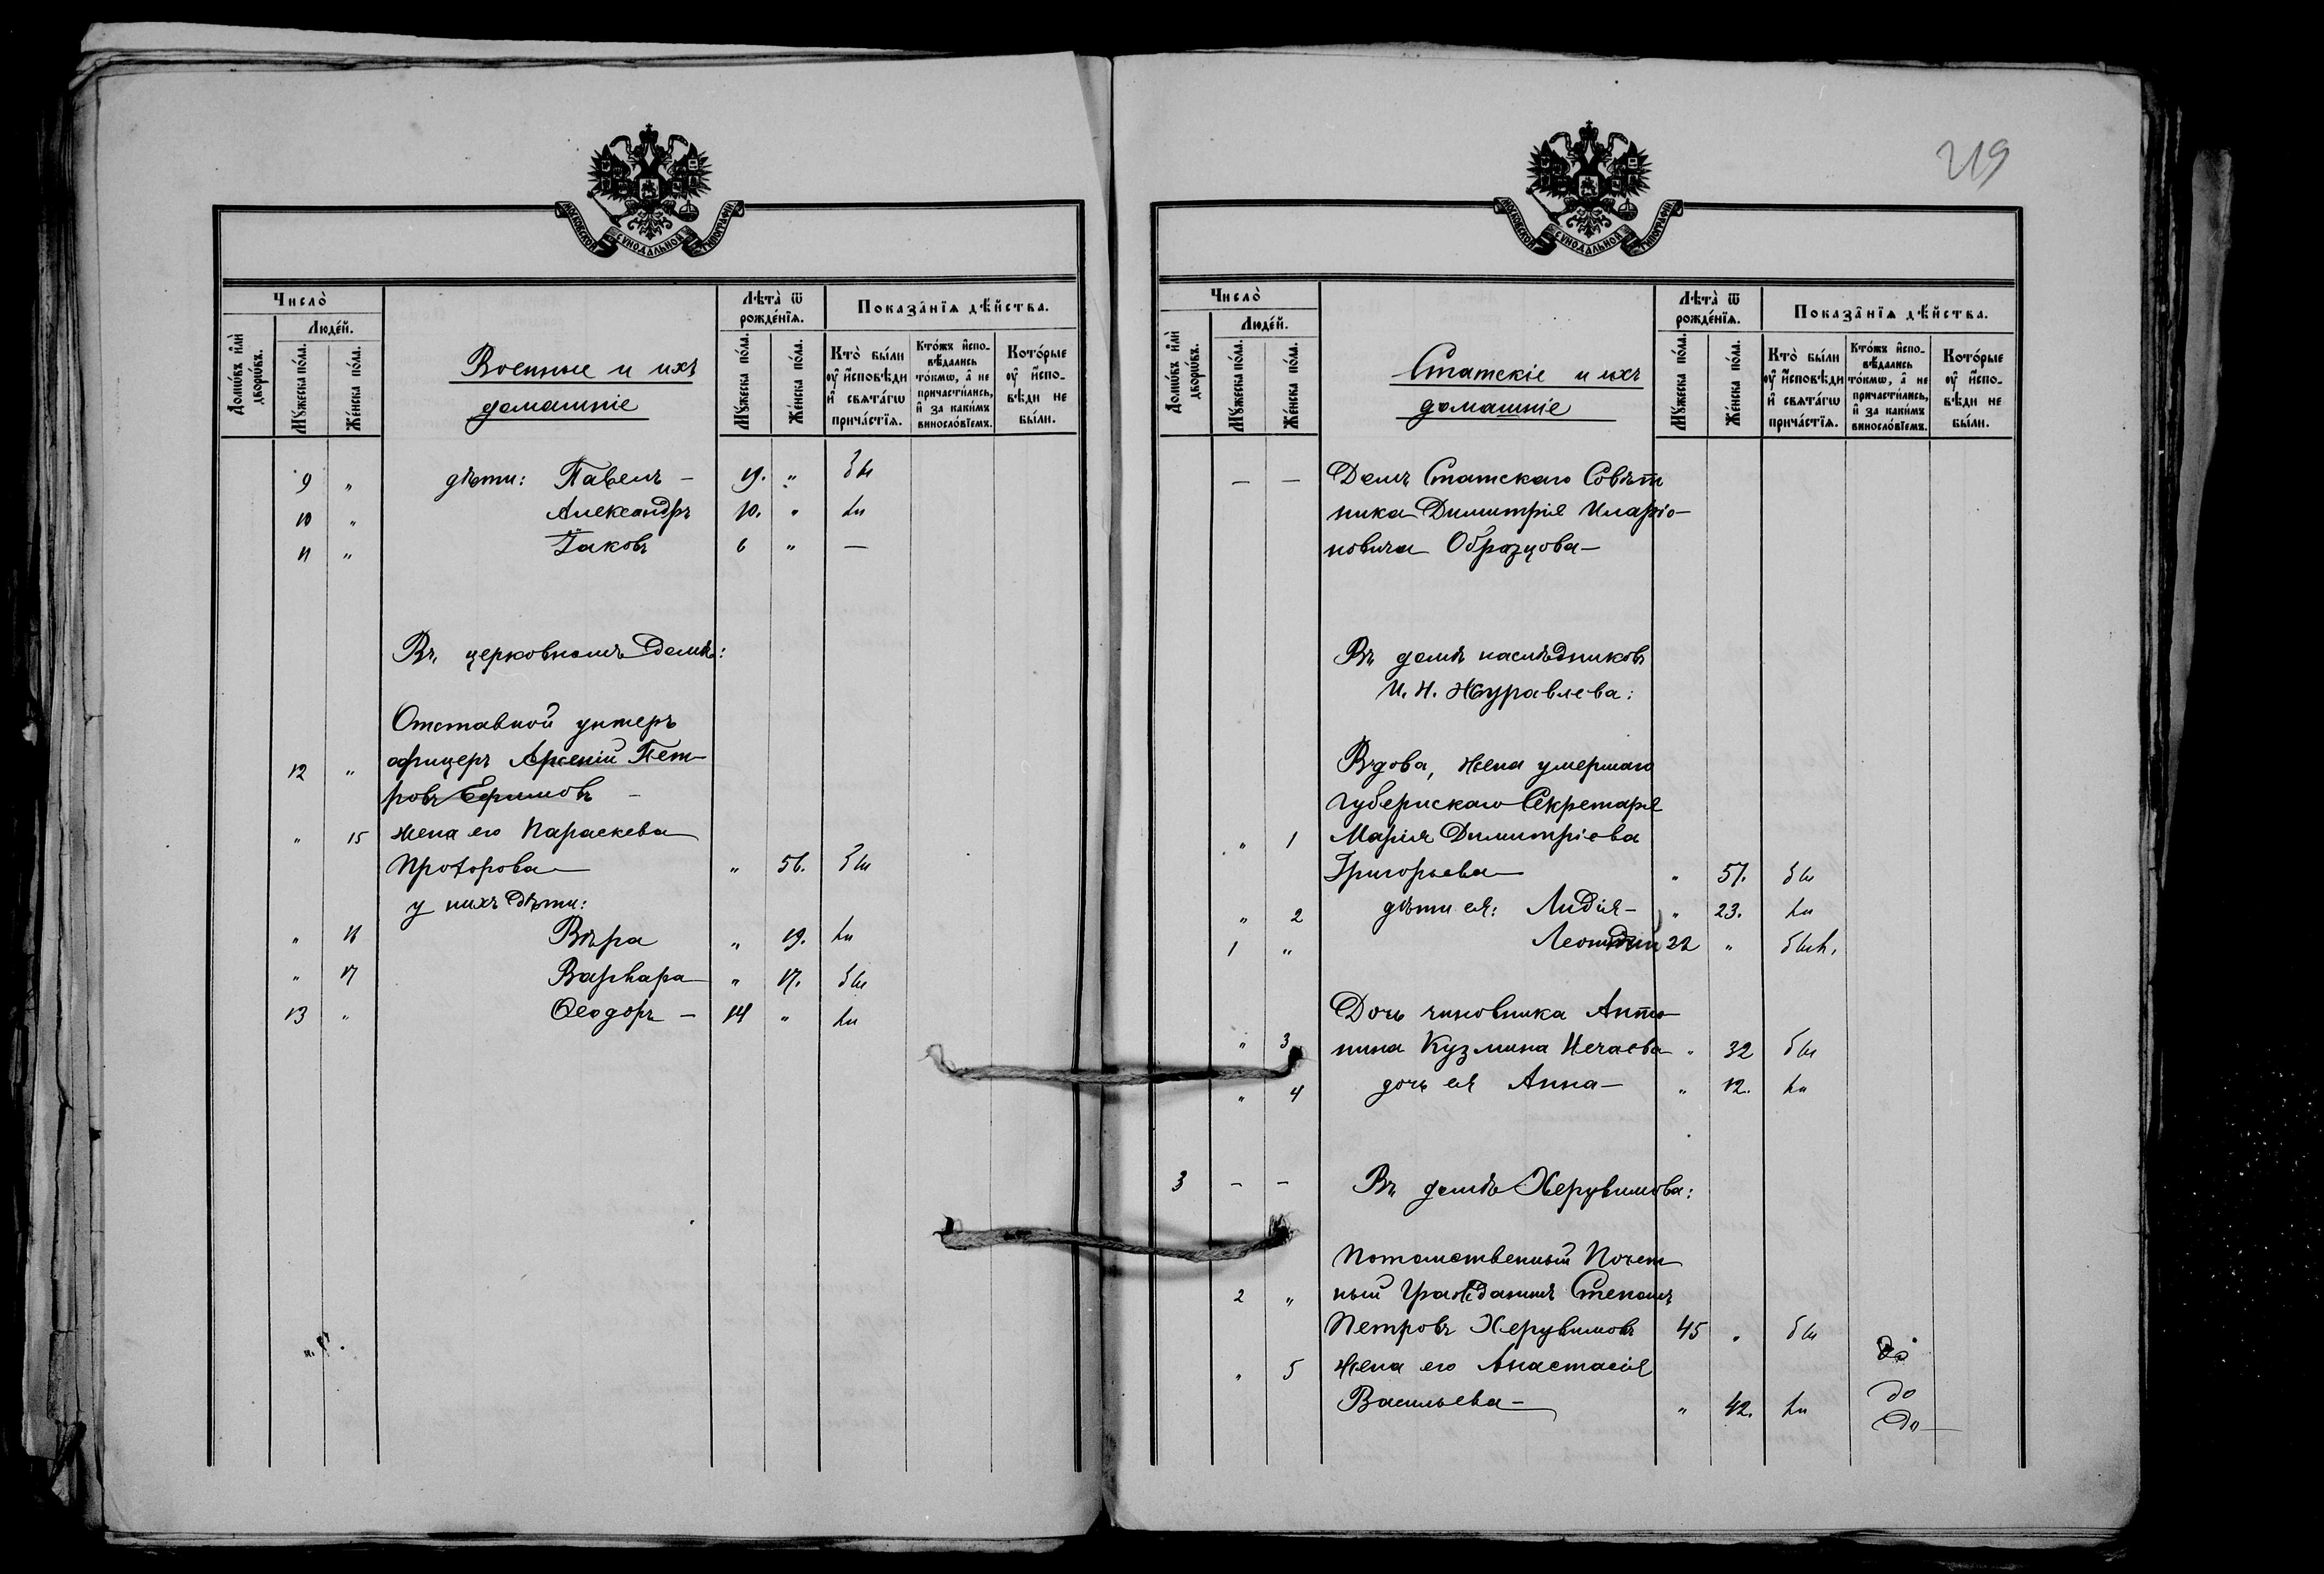 МОСКОВСКОЙ СѴНОДАЛЬНОЙ ТИПОГРАФІИ
Число̀
Людéй.
Домѡ́въ и҆лѝ дворѡ́въ.
Мꙋжеска по́ла.
Же́нска по́ла.
Военные и ихъ
домашніе
Лѣта̀ ѿ рожде́нїѧ.
Мꙋжеска по́ла.
Же́нска по́ла.
Показа̑нїѧ дѣ́йства.
Кто̀ бы́ли оу҆ и҆́сповѣди и҆ свѧта́гѡ прича́стїѧ.
Кто́жъ и҆спо-
вѣ́дались
то́кмѡ, а҆ не
причасти́лись,
и҆ за каки́мъ
винослóвїемъ.
Кото́рые оу҆ и҆́спо-
вѣди не
бы́ли.
9 " дѣти: Павелъ — 19. " бы
10 " Александръ 10. " ли
11 " Іаковъ 6 " —
Въ церковномъ домѣ:
Отставной унтеръ
12 " офицеръ Арсеній Пет-
ровъ Ефимовъ —
" 15 жена его Параскева
Проторова — " 56. бы
у нихъ дѣти:
" 16 Вѣра " 19. ли
" 17 Варвара — " 17. бы
13 " Ѳеодоръ — 14 " ли
219
МОСКОВСКОЙ СѴНОДАЛЬНОЙ ТИПОГРАФІИ
Число̀
Людéй.
Домѡ́въ и҆лѝ дворѡ́въ.
Мꙋжеска по́ла.
Же́нска по́ла.
Статскіе и ихъ
домашніе
Лѣта̀ ѿ рожде́нїѧ.
Мꙋжеска по́ла.
Же́нска по́ла.
Показа̑нїѧ дѣ́йства.
Кто̀ бы́ли оу҆ и҆́сповѣди и҆ свѧта́гѡ прича́стїѧ.
Кто́жъ и҆спо-
вѣ́дались
то́кмѡ, а҆ не
причасти́лись,
и҆ за каки́мъ
винослóвїемъ.
Кото́рые оу҆ и҆́спо-
вѣди не
бы́ли.
— — Домъ Статскаго Совѣт
ника Димитрія Иларіо-
новича Образцова —
Въ домѣ наслѣдниковъ
И. Н. Журавлева:
Вдова, жена умершаго
Губернскаго Секретаря
" 1 Марія Димитріева
Григорьева — " 57. бы
" 2 дѣти ея: Лидія — " 23. ли
1 " Леонидъ 22 "
Дочь чиновника Анто-
" 3 нина Кузмина Нечаева — " 32 бы
" 4 дочь ея Анна — " 12. ли
3 — — Въ домѣ Херувимова:
Потомственный Почет
2 " ный Гражданинъ Степанъ
Петровъ Херувимовъ 45 " бы
до
" 5 жена его Анастасія
Васильева — " 42. ли
до
до